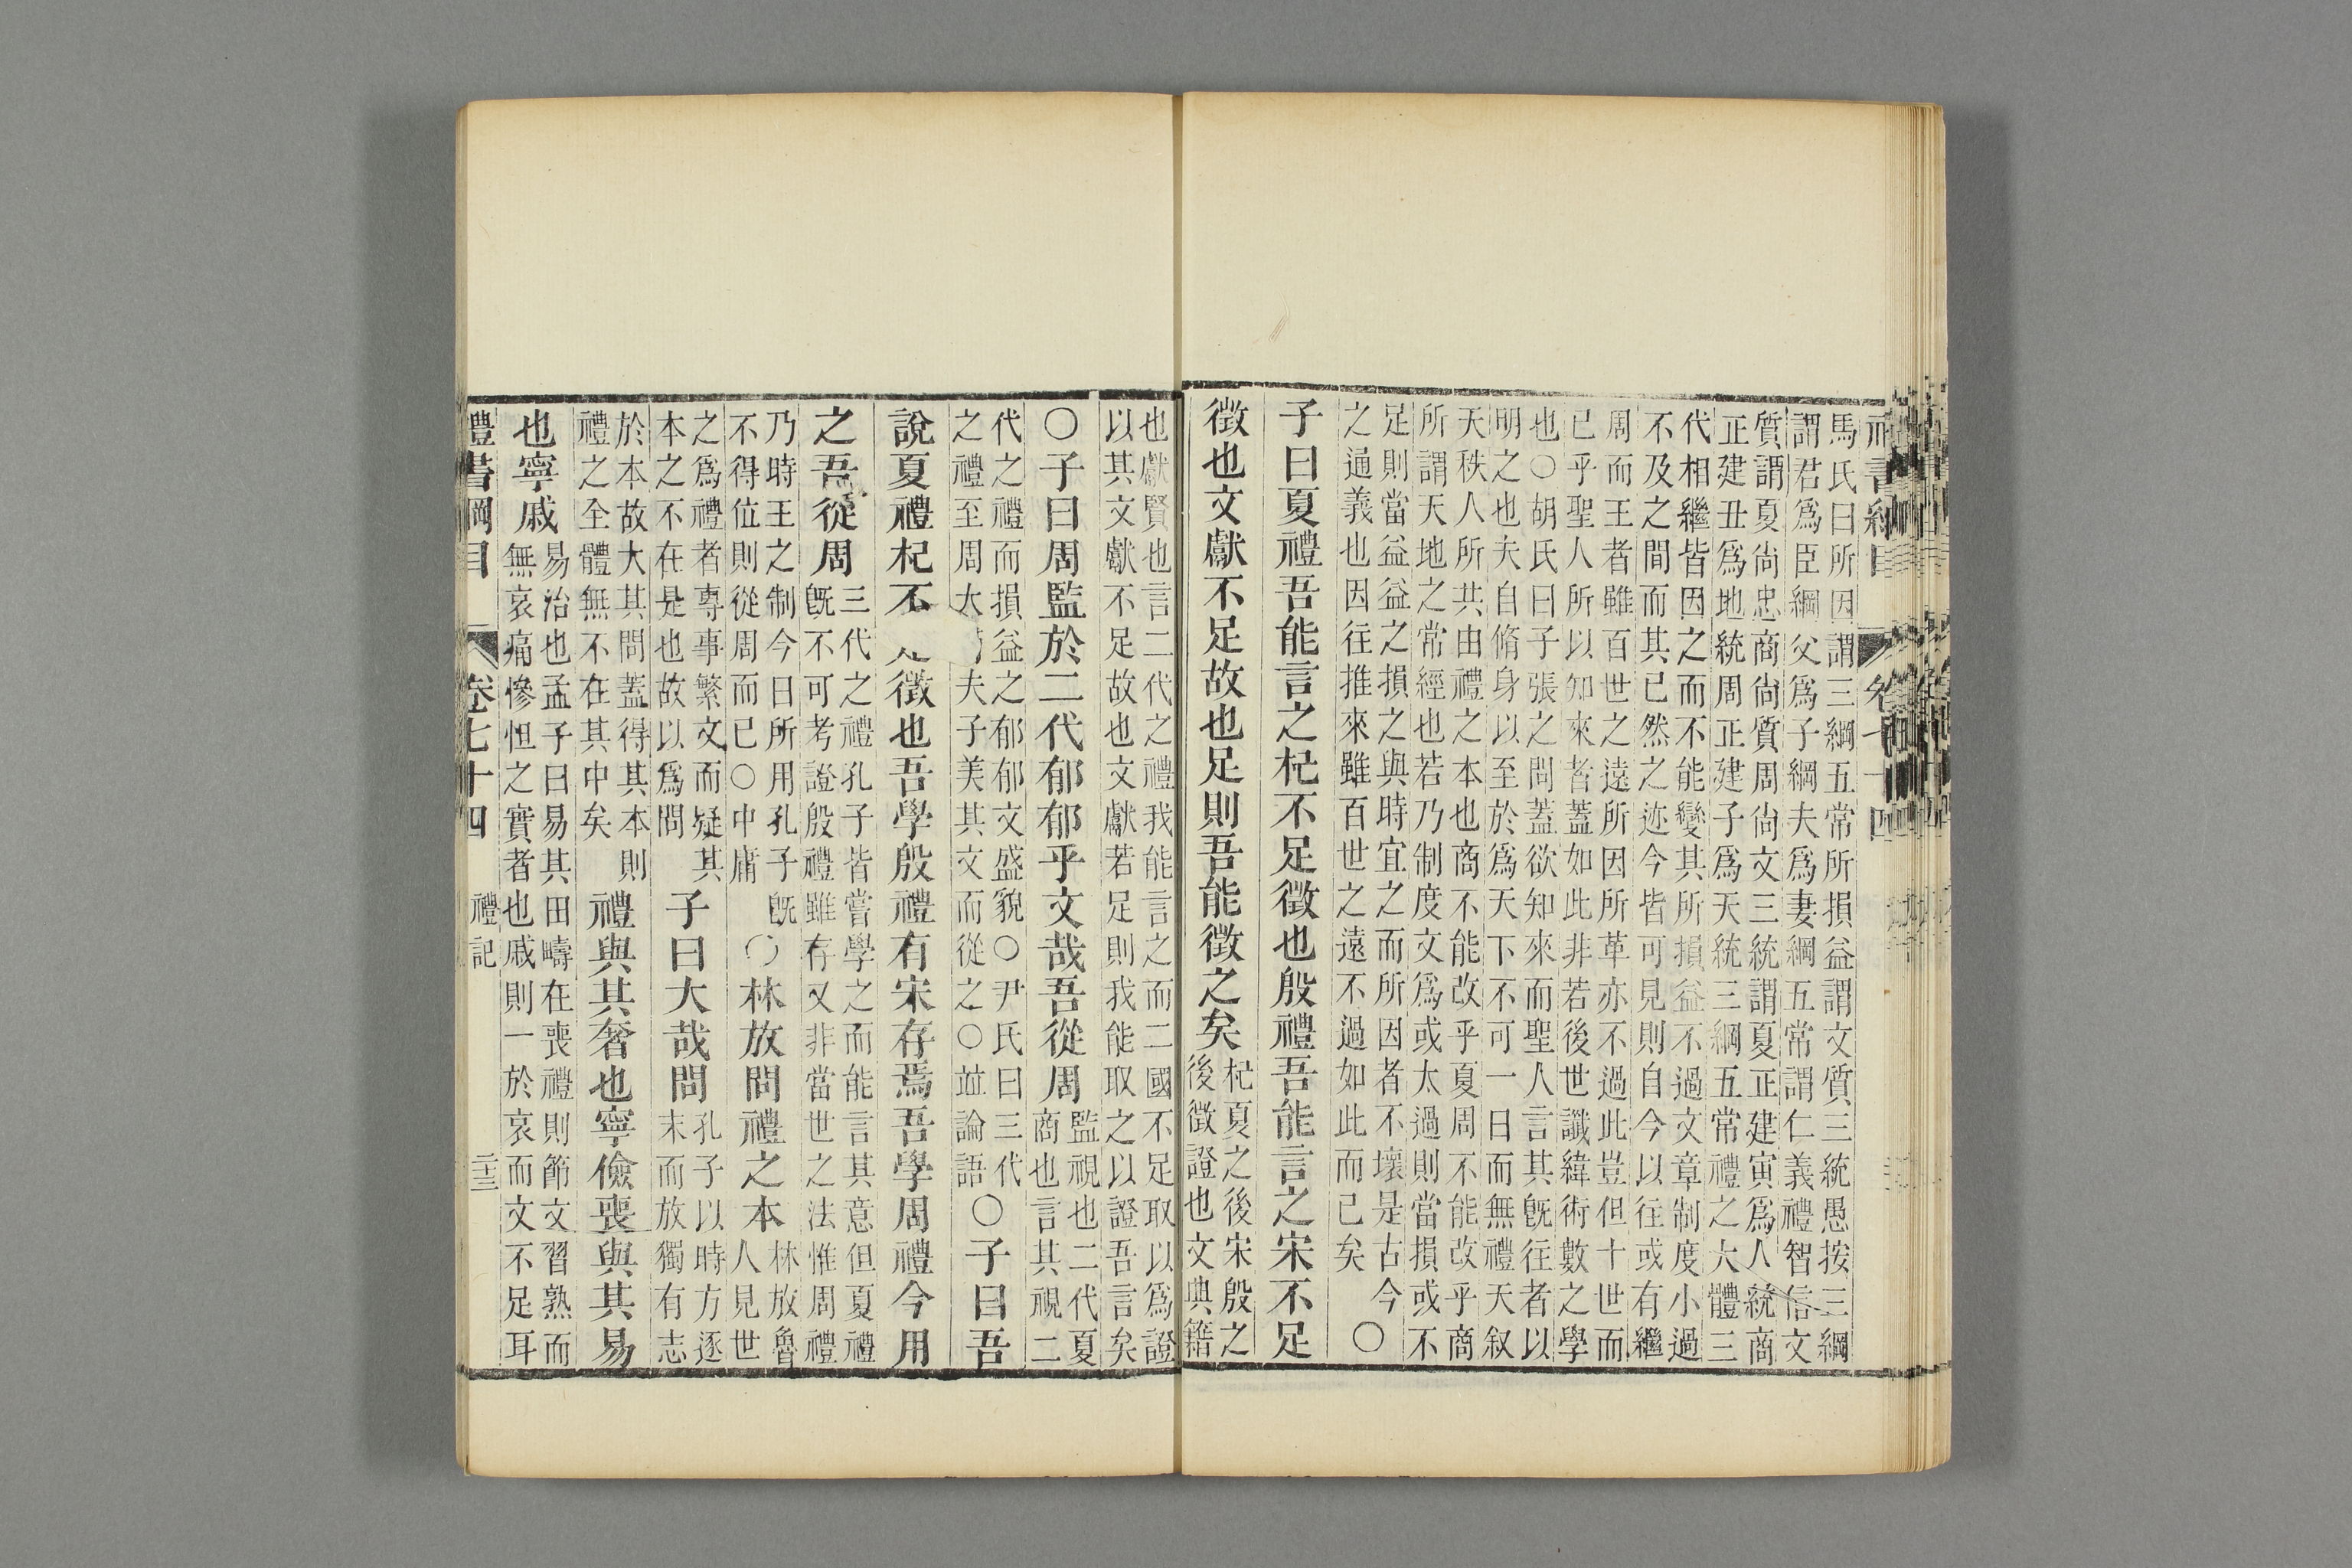 馬氏曰所因謂三綱五常所損益謂文質三統愚按三綱
謂君爲臣綱父爲子綱夫爲妻綱五常謂仁義禮智信文
質謂夏尚忠商尚質周尚文三統謂夏正建寅爲人統商
正建丑爲地統周正建子爲天統三綱五常禮之大體三
代相繼皆因之而不能變其所損益不過文章制度小過
不及之間而其已然之迹今皆可見則自今以往或有繼
周而王者雖百世之遠所因所革亦不過此豈但十世而
已乎聖人所以知來者蓋如此非若後世讖緯術數之學
也○胡氏曰子張之問蓋欲知來而聖人言其旣往者以
明之也夫自脩身以至於爲天下不可一日而無禮天叙
天秩人所共由禮之本也商不能改乎夏周不能改乎商
所謂天地之常經也若乃制度文爲或太過則當損或不
足則當益益之損之與時宜之而所因者不壞是古今
之通義也因往推來雖百世之遠不過如此而已矣 ○
子曰夏禮吾能言之杞不足徵也殷禮吾能言之宋不足
徵也文獻不足故也足則吾能徵之矣
杞夏之後宋殷之
後徵證也文典籍
也獻賢也言二代之禮我能言之而二國不足取以爲證
以其文獻不足故也文獻若足則我能取之以證吾言矣
○子曰周監於二代郁郁乎文哉吾從周
監視也二代夏
商也言其視二
代之禮而損益之郁郁文盛貌○尹氏曰三代
之禮至周大 夫子美其文而從之○竝論語
○子曰吾
說夏禮杞不 徵也吾學殷禮有宋存焉吾學周禮今用
之吾從周
三代之禮孔子皆嘗學之而能言其意但夏禮
旣不可考證殷禮雖存又非當世之法惟周禮
乃時王之制今日所用孔子旣
不得位則從周而已○中庸
○林放問禮之本
林放魯
人見世
之爲禮者專事繁文而疑其
本之不在是也故以爲問
子曰大哉問
孔子以時方逐
末而放獨有志
於本故大其問蓋得其本則
禮之全體無不在其中矣
禮與其奢也寧儉喪與其易
也寧戚
易治也孟子曰易其田疇在喪禮則節文習熟而
無哀痛慘怛之實者也戚則一於哀而文不足耳
禮書綱目 卷七十四 禮記 二十三